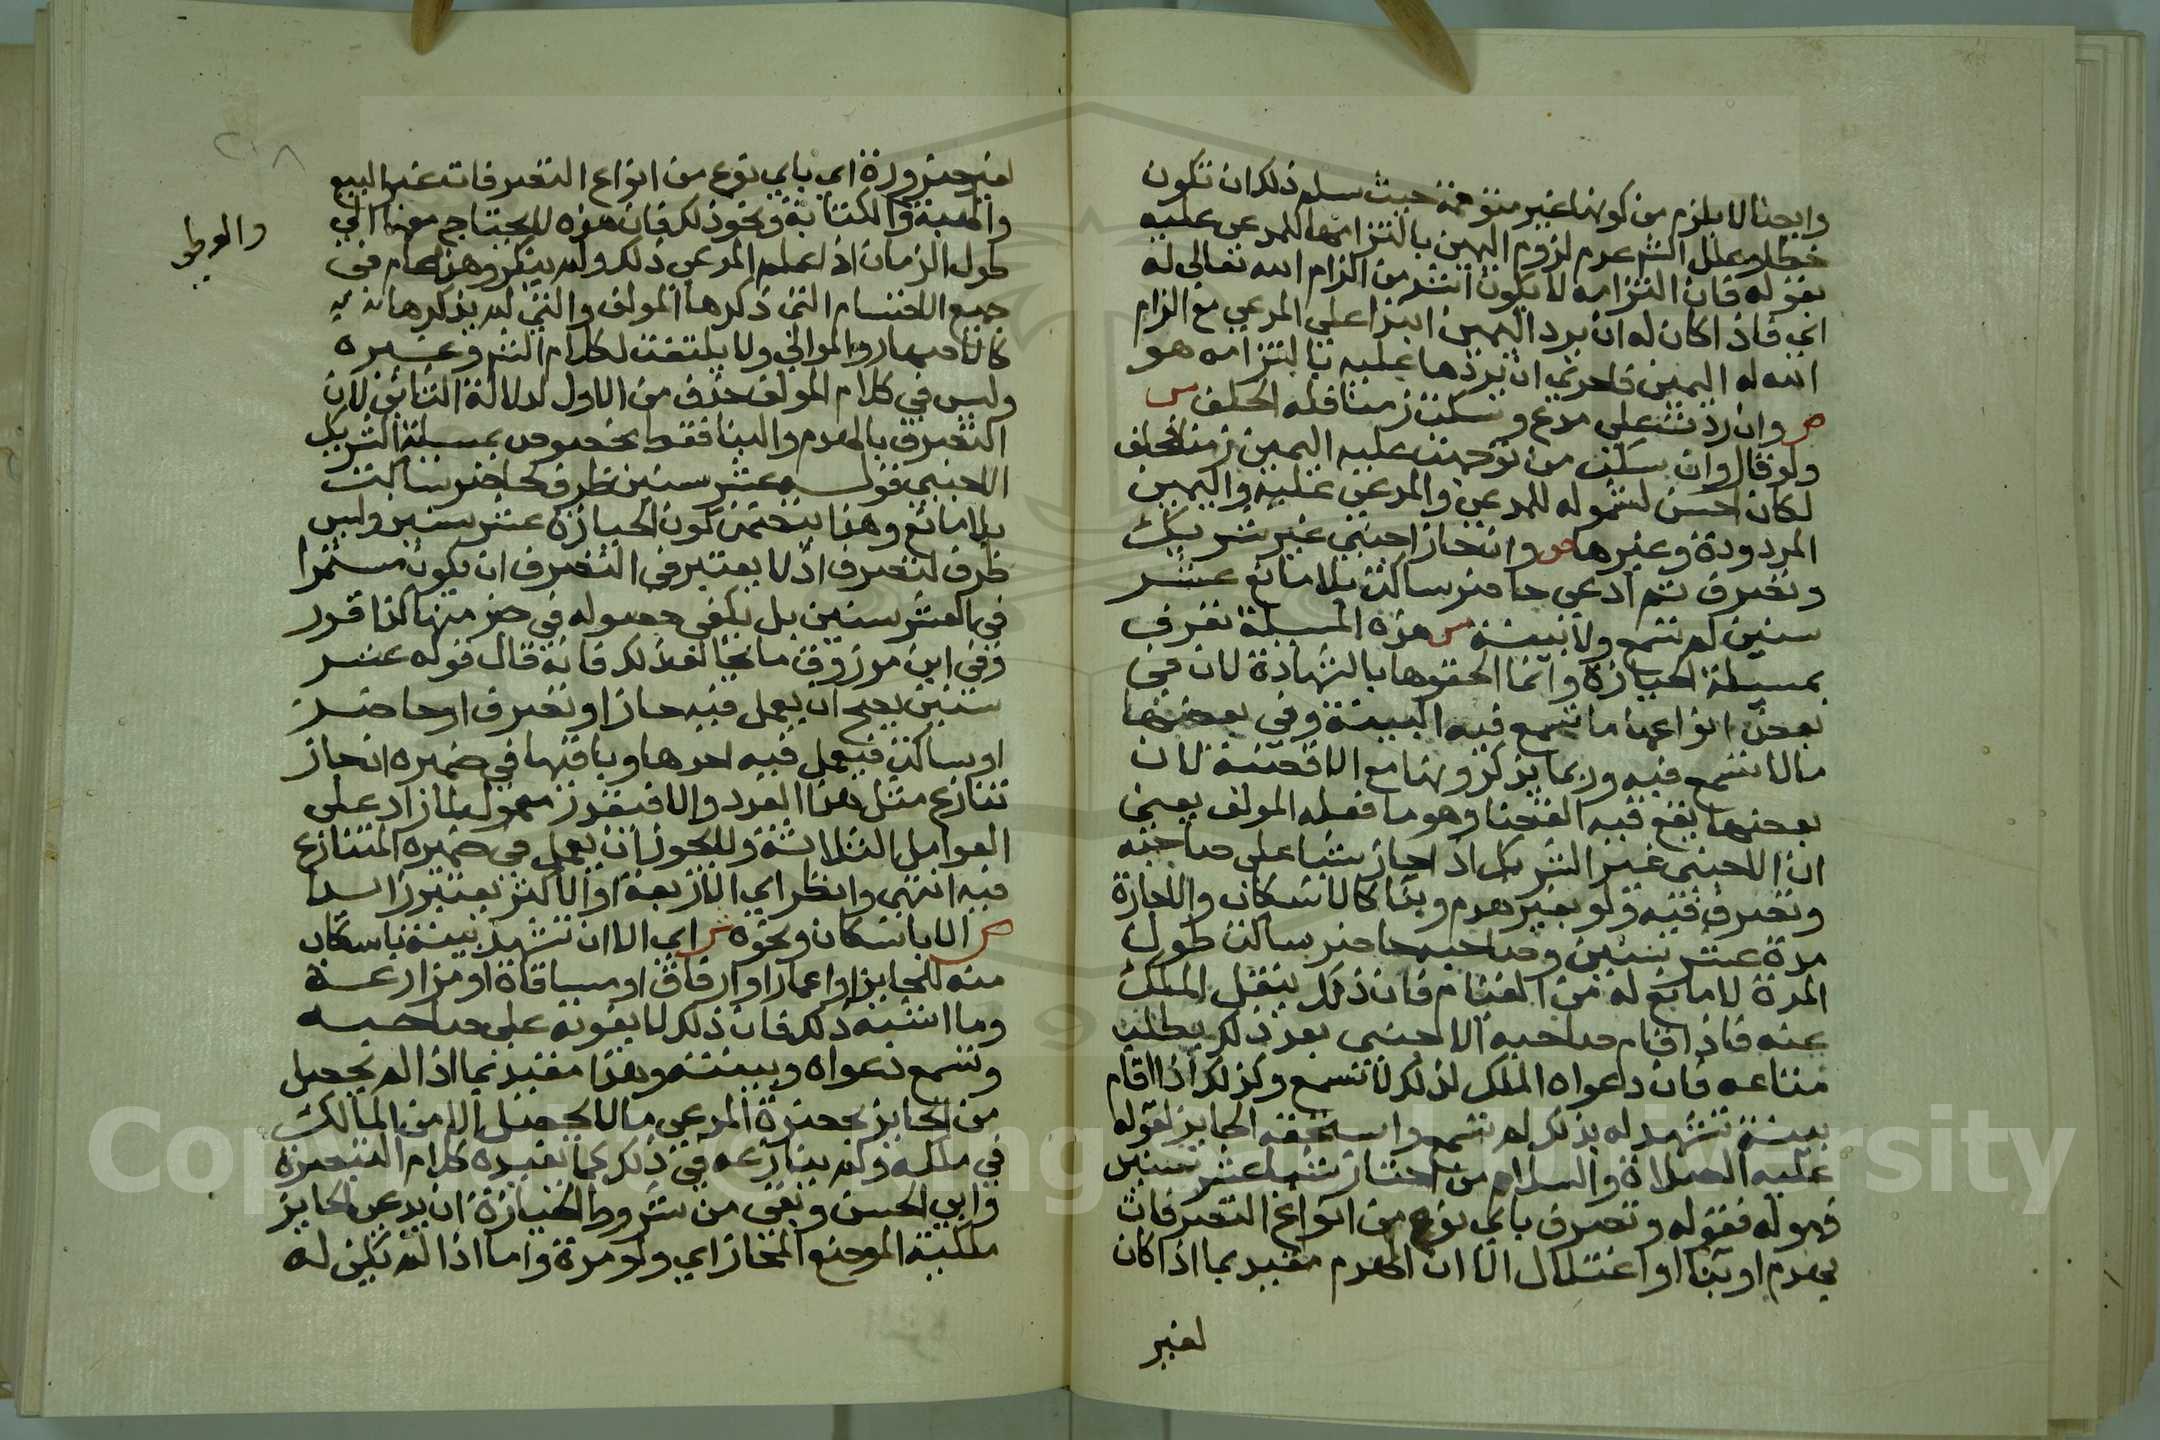 وايضا لا يلزم من كونها غير متوجهة حيث سلم ذلك ان تكون
خطا وعلل الش عدم لزوم اليمين بالتزامها للمدعى عليه
بقوله فان التزامه لا يكون اشد من الزام الله تعالى له
اي فاذا كان له ان يرد اليمين ابتدا على المدعي مع الزام
الله له اليمين فاحرى ان يردها عليه بالتزامه هو
ص وان ردت على مدع وسكت زمنا فله الحلف ش
ولو قال وان سكت من توجهت عليه اليمين زمنا فله الحلف
لكان احسن لشموله للمدعي والمدعى عليه واليمين
المردودة وغيرها ص وان حاز اجنبي غير شريك
وتصرف ثم ادعى حاضر ساكت بلا مانع عشر
سنين لم تسمع ولا بينة ش هذه المسيلة تعرف
بمسيلة الحيازة وانما الحقوها بالشهادة لان في
بعض انواعها ما تسمع فيه البينة وفي بعضها
ما لا تسمع فيه وربما يذكرونها مع الاقضية لان
بعضها يقع فيه القضا وهو ما فعله المولف يعني
ان الاجنبي غير الشريك اذا حاز شيا على صاحبه
وتصرف فيه ولو بغير هدم وبنا كالاسكان والاجارة
مدة عشر سنين وصاحبه حاضر ساكت طول
المدة لا مانع له من القيام فان ذلك ينقل الملك
عنه فاذا قام صاحبه الاجنبى بعد ذلك يطلب
متاعه فان دعواه الملك لذلك لا تسمع وكذلك اذا اقام
بينة تشهد له بذلك لم تسمع واستحقه الحايز لقوله
عليه الصلاة والسلام من احتاز شيا عشر سنين
فهو له فقوله وتصرف باي نوع من انواع التصرفات
بهدم او بنا او اغتلال الا ان الهدم مقيد بما اذا كان
لغير
لغير ضرورة اي باي نوع من انواع التصرفات غير البيع
والهبة والكتابة ونحو ذلك فان هذه لا يحتاج معها الى
والوطي
طول الزمان اذا علم المدعي ذلك ولم ينكر وهذا عام في
جميع الاقسام التي ذكرها المولف والتي لم يذكرها
كالاصهار والموالي ولا يلتفت لكلام الش وغيره
وليس في كلام المولف حذف من الاول لدلالة الثاني لان
التصرف بالهدم والبنا فقط مخصوص بمسيلة الشريك
الاجنبي قوله عشر سنين ظرف لحاضر ساكت
بلا مانع وهذا يتضمن كون الحيازة عشر سنين وليس
ظرف لتصرف اذ لا يعتبر في التصرف ان يكون مستمرا
في العشر سنين بل يكفي حصوله في جز منها كذا قرر
وفي ابن مرزوق ما يخالف ذلك فانه قال قوله عشر
سنين يصح ان يعمل فيه حاز او تصرف او حاضر
او ساكت فيعمل فيه احدها وباقيها في ضميره ان جاز
تنازع مثل هذا العدد والا فيقدر معمول لما زاد على
العوامل الثلاثة ولا يجوز ان يعمل في ضميره المتنازع
فيه انتهى وانظر اي الاربعة او الاكثر يعتبر زايدا
ص الا باسكان ونحوه ش اي الا ان تشهد بينة باسكان
منه للحايز او اعمار او ارفاق او مساقاة او مزارعة
وما اشبه ذلك فان ذلك لا يفوته على صاحبه
وتسمع دعواه وبينته وهذا مقيد بما اذا لم يحصل
من الحايز بحضرة المدعي ما لا يحصل الا من المالك
في ملكه ولم ينازعه في ذلك كما يفيده كلام التبصرة
وابي الحسن وبقي من شروط الحيازة ان يدعي الحايز
ملكية الموضع المحاز اي ولو مرة واما اذا لم يكن له